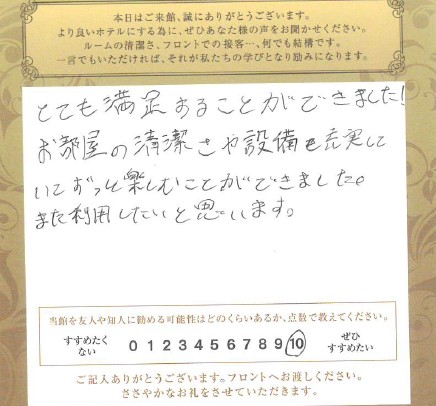 本日はご来館、誠にありがとうございます。
より良いホテルにする為に、ぜひあなた様の声をお聞かせください。
ルームの清潔さ、フロントでの接客…、何でも結構です。
一言でもいただければ、それが私たちの学びとなり励みになります。
とても満足することができました！
お部屋の清潔さや設備も充実して
いてずっと楽しむことができました。
また利用したいと思います。
当館を友人や知人に勧める可能性はどのくらいあるか、点数で教えてください。
すすめたくない 0 1 2 3 4 5 6 7 8 9 10 ぜひすすめたい
ご記入ありがとうございます。フロントへお渡しください。
ささやかなお礼をさせていただきます。